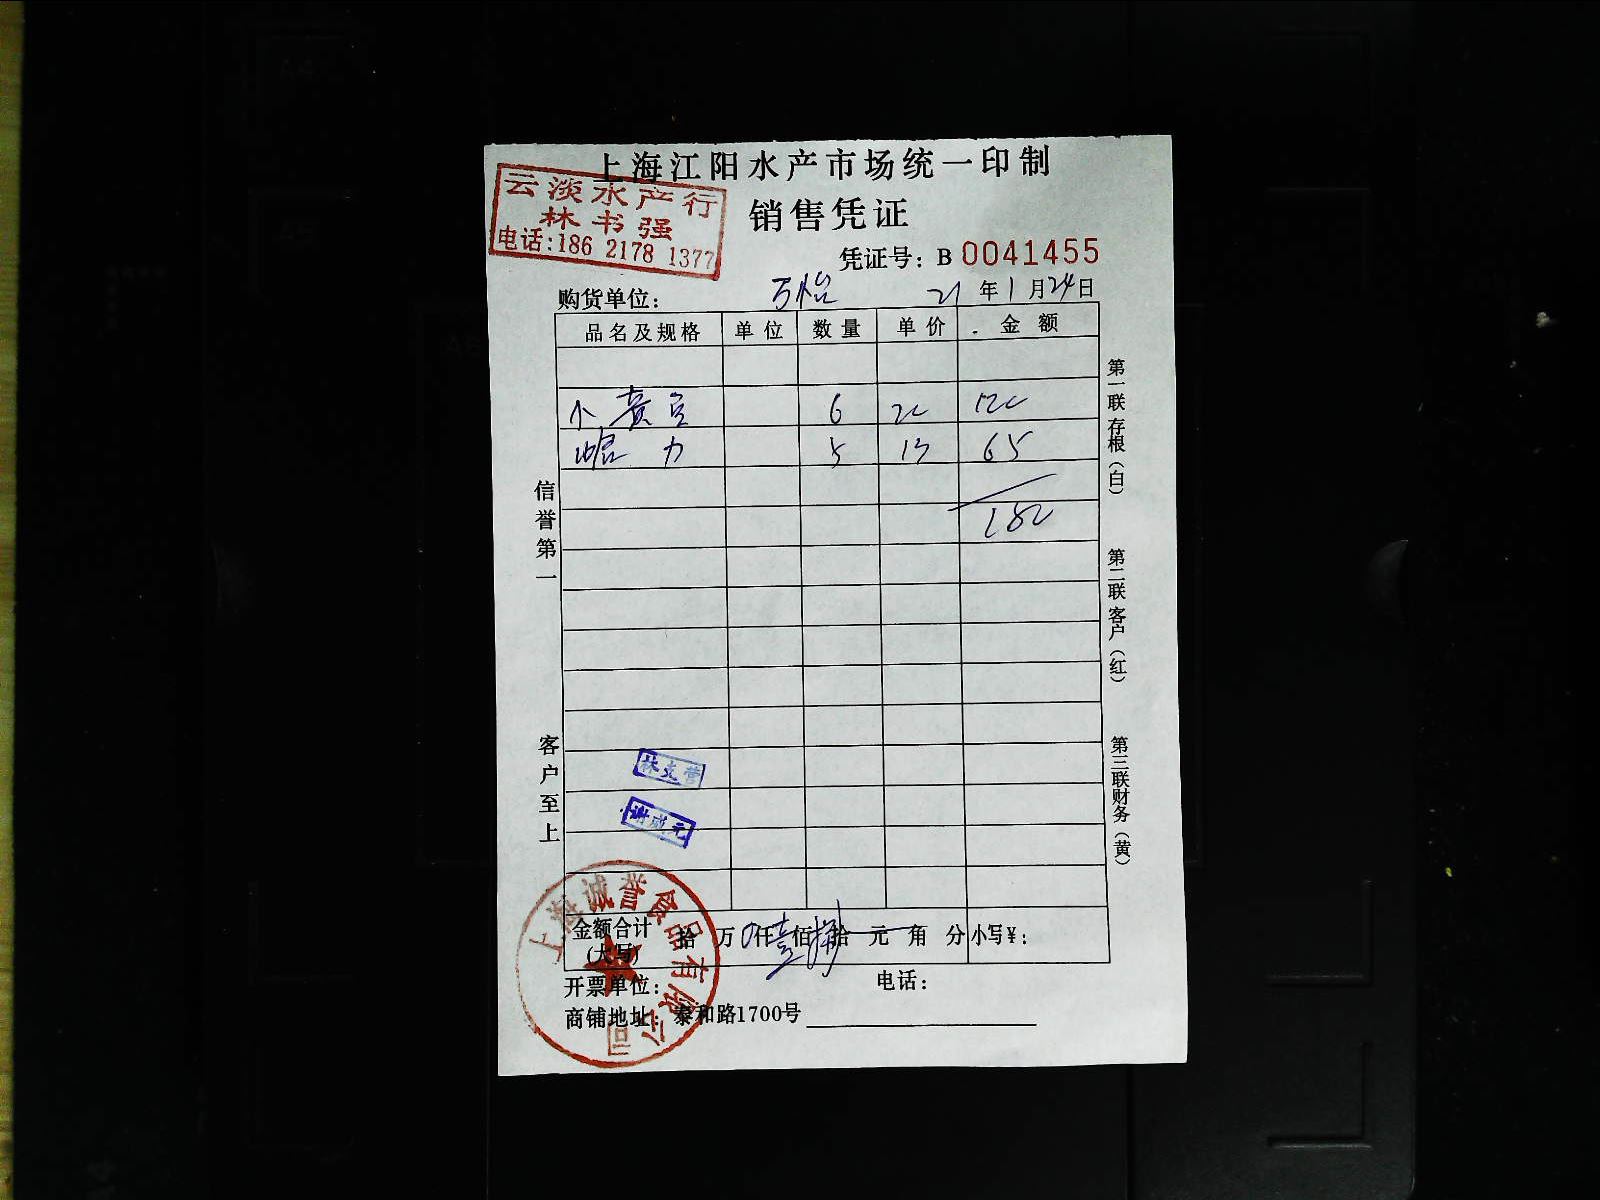 上海江阳水产市场统一印制
云淡水产行
林书强
电话:186 2178 1377
销售凭证
凭证号: B 0041455
购货单位: 万怡 21 年 1 月 24 日
品名及规格 单位 数量 单价 金额
小黄豆 6 20 120
5 13 65
180
信誉第一
客户至上
第一联存根(白)
第二联客户(红)
第三联财务(黄)
林支营
谢成元
上海诚誉食品有限公司
金额合计(大写) 拾 万 仟 壹 佰 捌 拾 元 角 分 小写¥:
开票单位: 电话:
商铺地址: 泰和路1700号